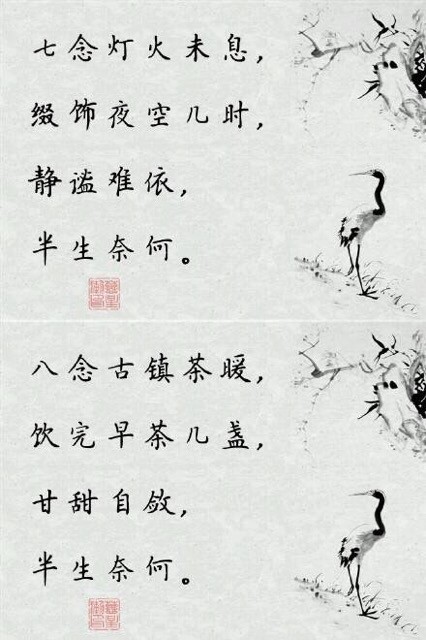 七念灯火未息，
缀饰夜空几时，
静谧难依，
半生奈何。
八念古镇茶暖，
饮完早茶几盏，
甘甜自敛，
半生奈何。